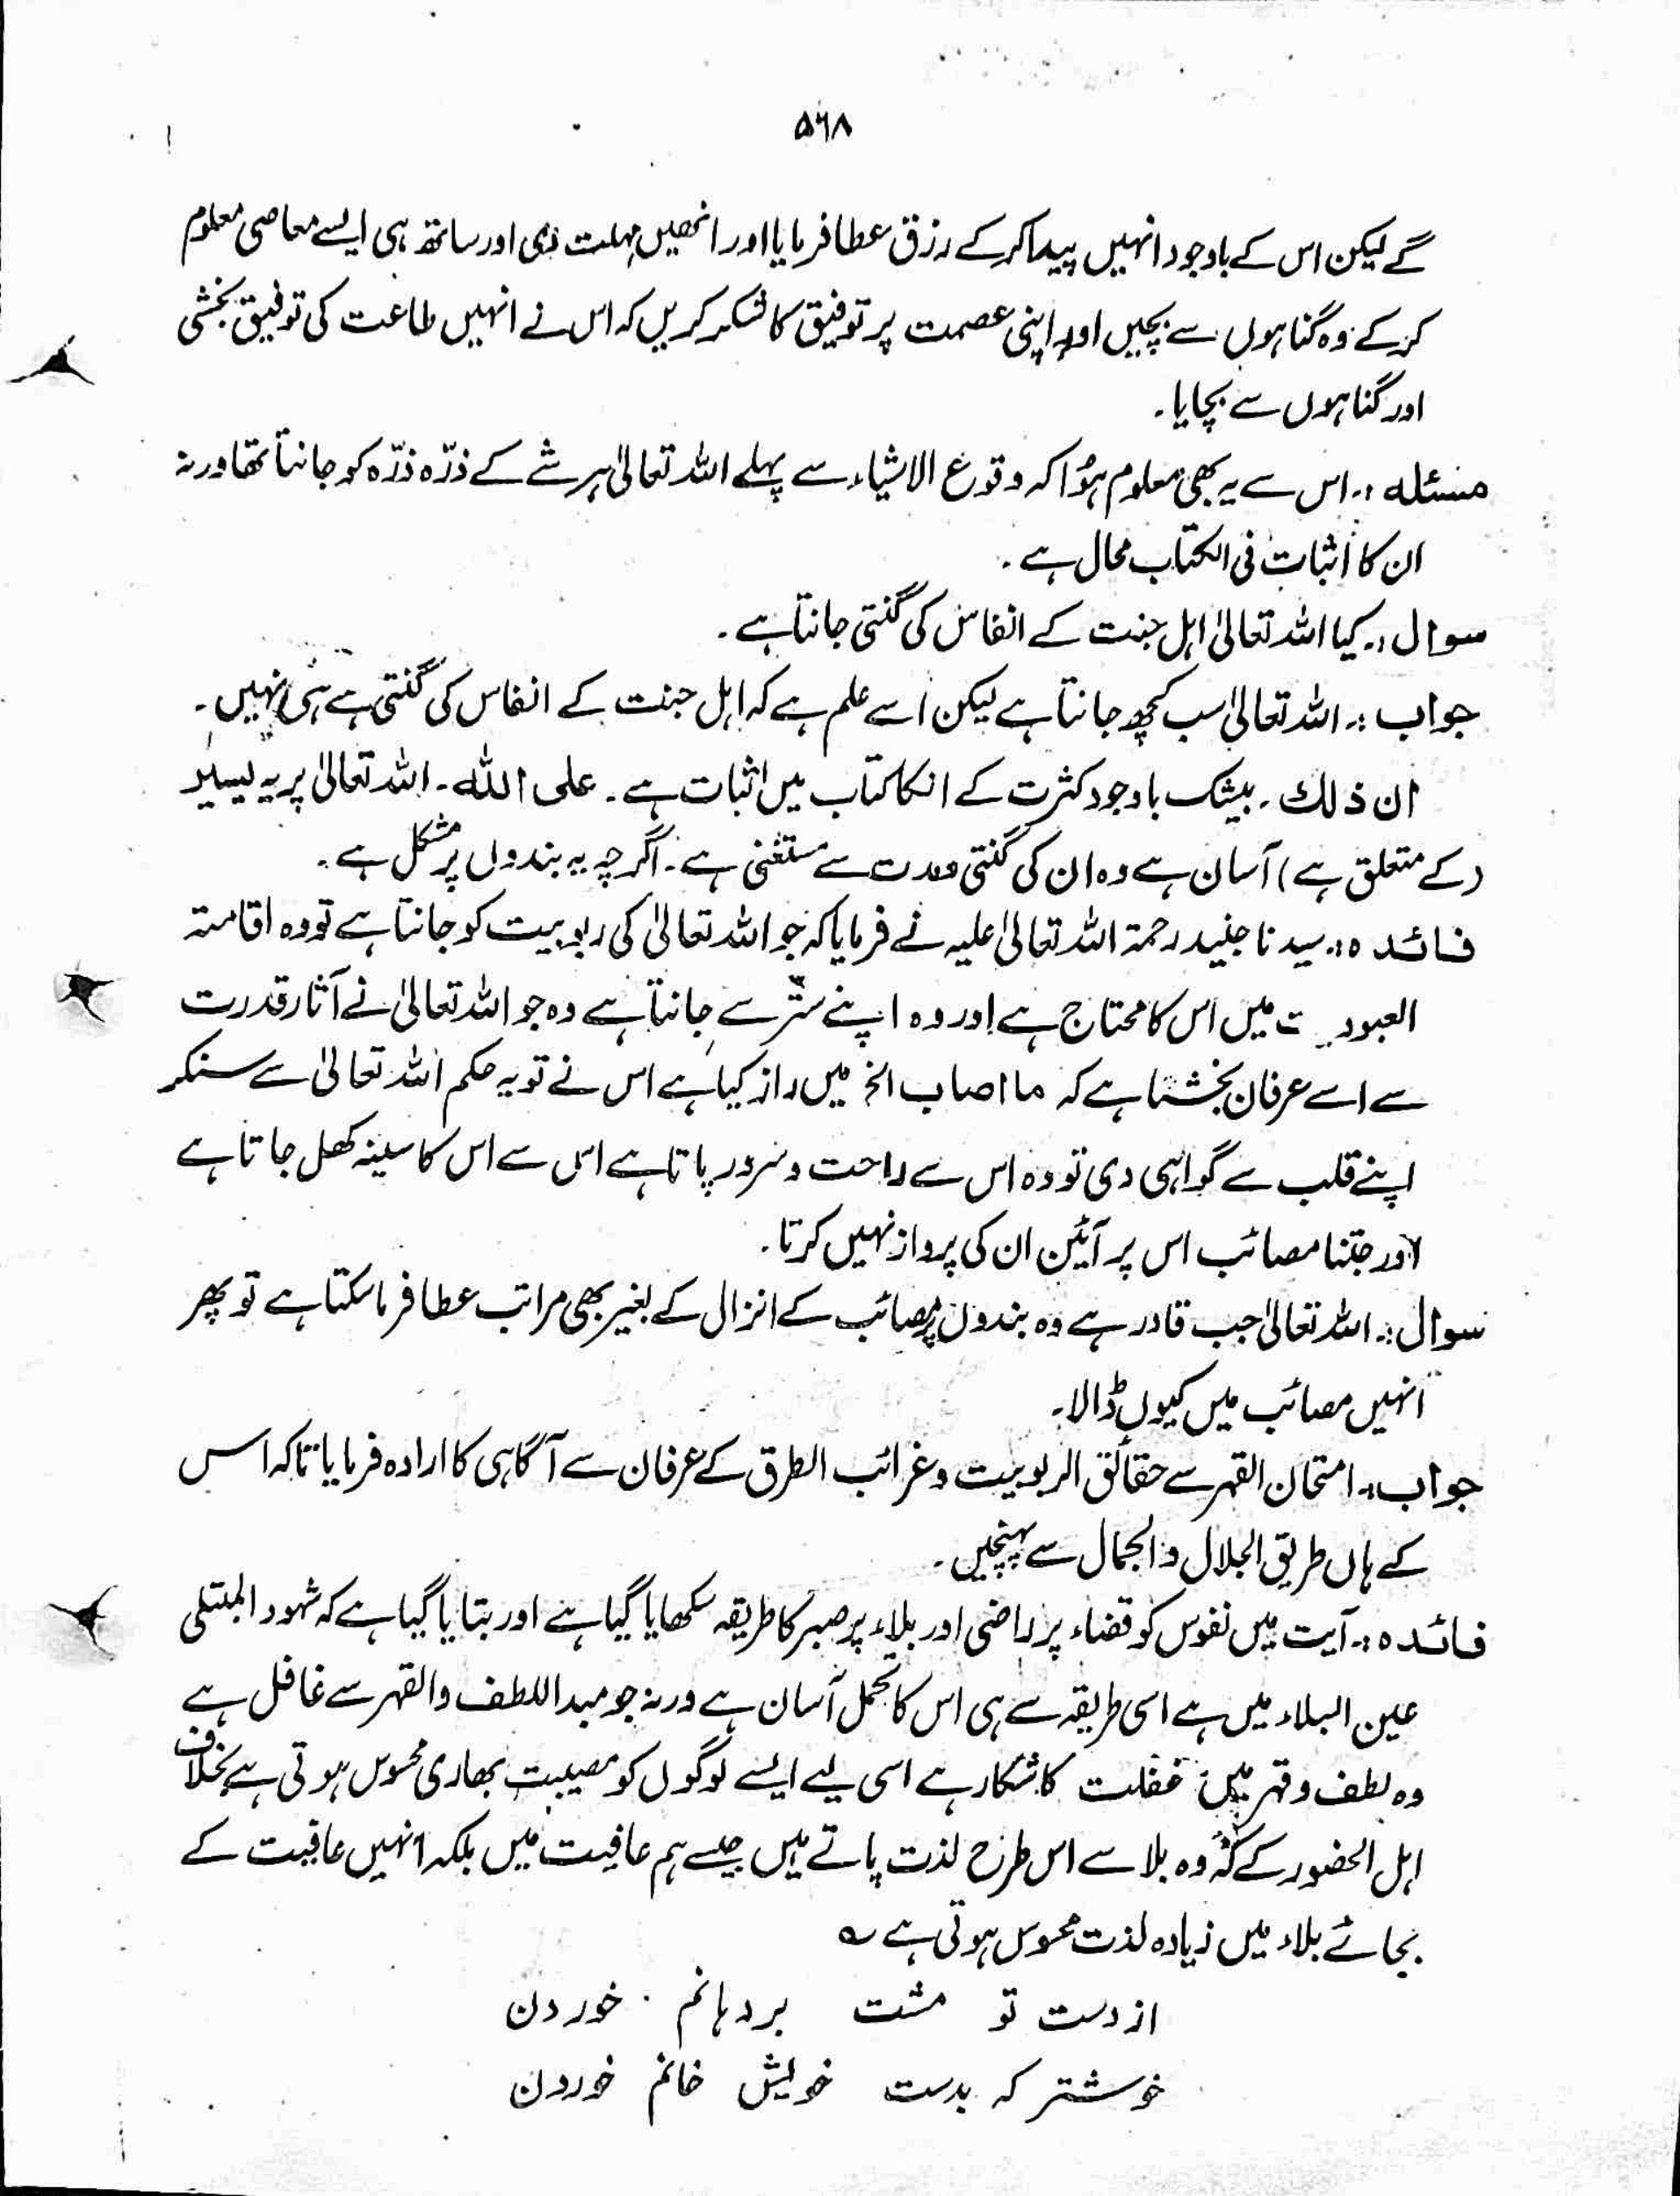 ۵۶۸
گے لیکن اس کے باوجود انہیں پیدا کرکے رزق عطا فرمایا اور انھیں مہلت دی اور ساتھ ہی ایسے معاصی معلوم
کرکے وہ گناہوں سے بچیں اور اپنی عصمت پر توفیق کا شکر کریں کہ اس نے انہیں طاعت کی توفیق بخشی
اور گناہوں سے بچایا۔
مسئلہ :۔ اس سے یہ بھی معلوم ہؤا کہ وقوع الاشیاء سے پہلے اللہ تعالیٰ ہر شے کے ذرّہ ذرّہ کو جانتا تھا ورنہ
ان کا اثبات فی الکتاب محال ہے۔
سوال :۔ کیا اللہ تعالیٰ اہل جنت کے انفاس کی گنتی جانتا ہے۔
جواب :۔ اللہ تعالیٰ سب کچھ جانتا ہے لیکن اسے علم ہے کہ اہل جنت کے انفاس کی گنتی ہے ہی نہیں۔
ان ذلك ۔ بیشک باوجود کثرت کے انکا کتاب میں اثبات ہے۔ علی اللّٰه۔ اللہ تعالیٰ پر یہ یسیر
(کے متعلق ہے) آسان ہے وہ ان کی گنتی و مدت سے مستغنی ہے۔ اگرچہ یہ بندوں پر مشکل ہے۔
فائدہ :۔ سیدنا جنید رحمۃ اللہ تعالیٰ علیہ نے فرمایا کہ جو اللہ تعالیٰ کی ربوبیت کو جانتا ہے تو وہ اقامتہ
العبود ت میں اس کا محتاج ہے اور وہ اپنے سِرّ سے جانتا ہے وہ جو اللہ تعالیٰ نے آثار قدرت
سے اسے عرفان بخشتا ہے کہ ما اصاب الخ میں راز کیا ہے اس نے تو یہ حکم اللہ تعالیٰ سے سنکر
اپنے قلب سے گواہی دی تو وہ اس سے راحت و سرور پاتا ہے اس سے اس کا سینہ کھل جاتا ہے
اور جتنا مصائب اس پر آئیں ان کی پرواز نہیں کرتا۔
سوال :۔ اللہ تعالیٰ جب قادر ہے وہ بندوں پر مصائب کے انزال کے بغیر بھی مراتب عطا فرما سکتا ہے تو پھر
انہیں مصائب میں کیوں ڈالا۔
جواب :۔ امتحان القہر سے حقائق الربوبیت و غرائب الطرق کے عرفان سے آگاہی کا ارادہ فرمایا تاکہ اس
کے ہاں طریق الجلال و الجمال سے پہنچیں۔
فائدہ :۔ آیت میں نفوس کو قضاء پر راضی اور بلاء پر صبر کا طریقہ سکھایا گیا ہے اور بتایا گیا ہے کہ شہود المبتلی
عین البلاء میں ہے اسی طریقہ سے ہی اس کا تحمل آسان ہے ورنہ جو مبدا اللطف والقہر سے غافل ہے
وہ لطف و قہر میں غفلت کا شکار ہے اسی لیے ایسے لوگوں کو مصیبت بھاری محسوس ہوتی ہے بخلاف
اہل الحضور کے کہ وہ بلا سے اس طرح لذت پاتے ہیں جیسے ہم عافیت میں بلکہ انہیں عافیت کے
بجائے بلاء میں زیادہ لذت محسوس ہوتی ہے ؎
از دست تو مشت بردہانم خوردن
خوشتر کہ بدست خویش خانم خوردن